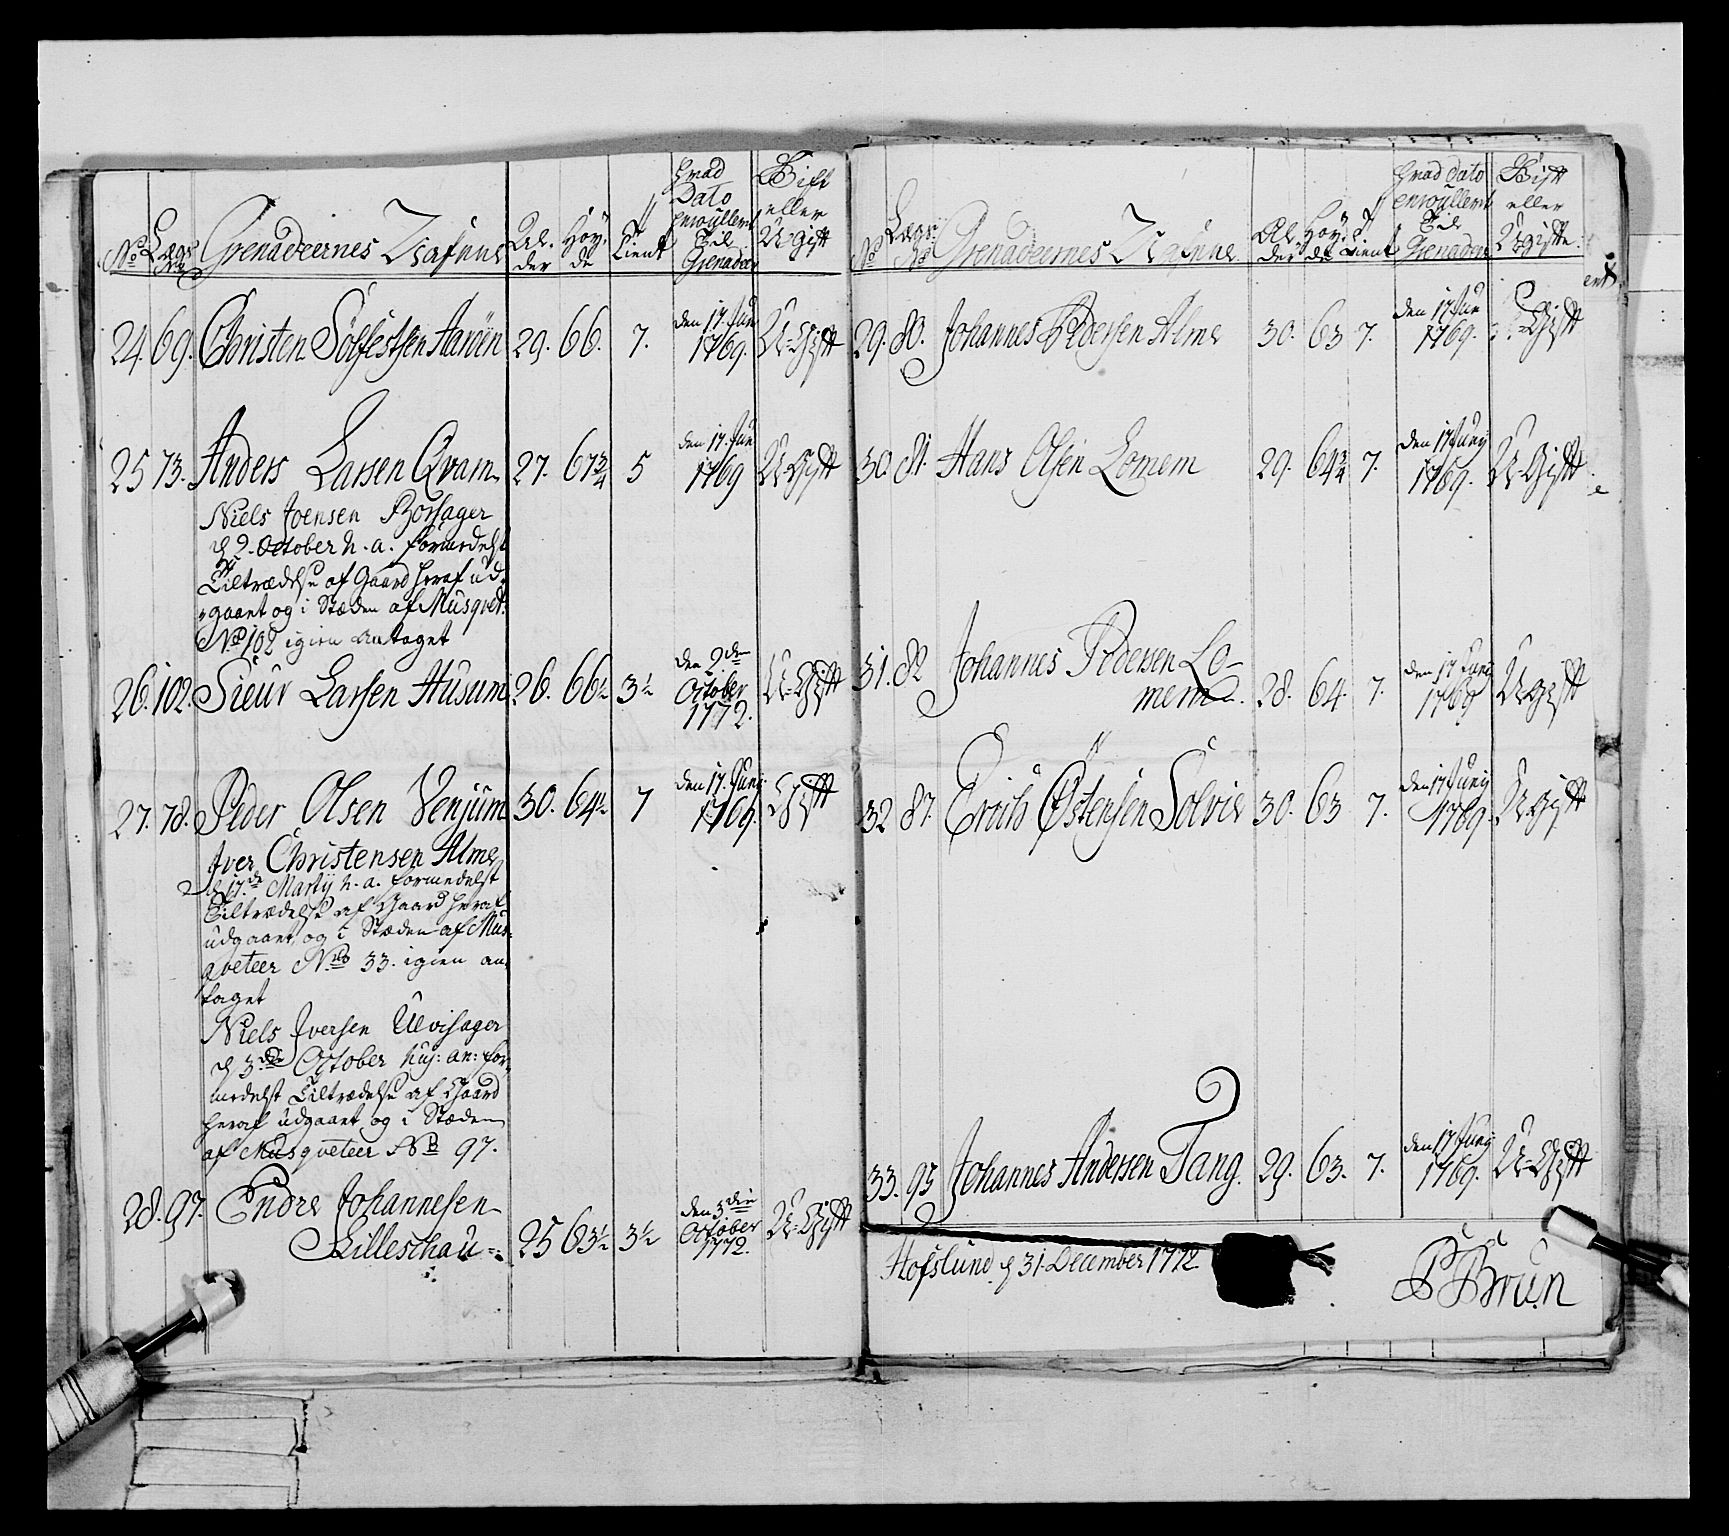 No Lægs No Grenadeernes Nafne Alder Høyde Tient hvad Dato enroullert til Grenadeer Gift eller U-Gift
24 69. Christen Sølfestsen Aarøen 29. 66. 7. den 17. Jun 1769. U-Gift
25 73. Anders Larsen Qvam 27. 67 3/4 5 den 17. Jun 1769 U-Gift
Niels Joensen Borlager
d 2. October h. a. formedelst
Tiltrædelse af Gaard heraf ud-
gaaet og i Stæden af Musqvet:
No 102 igien antaget
26. 102. Sieur Larsen Husum 26. 66 1/2 3 1/2 den 2den October 1772. U-Gift
27. 78. Peder Olsen Venjum 30. 64 1/2 7 den 17. Junij 1769. Gift
Iver Christensen Alme
d 17de Martij h. a. formedelst
Tiltrædelse af Gaard heraf
udgaaet, og i Stæden af Mus-
qveteer No 33. igien an-
taget
Niels Iversen Ulvisager
d 3die October huj: an: for-
medelst Tiltrædelse af Gaard
heraf udgaaet og i Stæden
af Musqveteer No 97.
28. 97. Endre Johannesen
Lilleschau 25 63 1/2 3 1/2 den 3die October 1772. U-Gift
No Lægs No Grenadeernes Nafne Alder Høyde Tient hvad Dato enroullert til Grenadeer Gift eller Ugifte
29. 80. Johannes Pedersen Alme 30. 63 7. den 17 Jun 1769. Gift
30. 81. Hans Olsen Lomem 29. 64 3/4 7. den 17 Junij 1769. U-Gift
31. 82 Johannes Pedersen Lo-
mem 28. 64. 7. den 17 Juni 1769 U-Gift
32 87. Erich Østensen Solvie 30. 63 7. den 17 Junij 1769. U-Gift
33. 95 Johannes Andersen Tang. 29. 63. 7. den 17 Junij 1769. U-Gift
Hofslund d 31. December 1772
P Brun